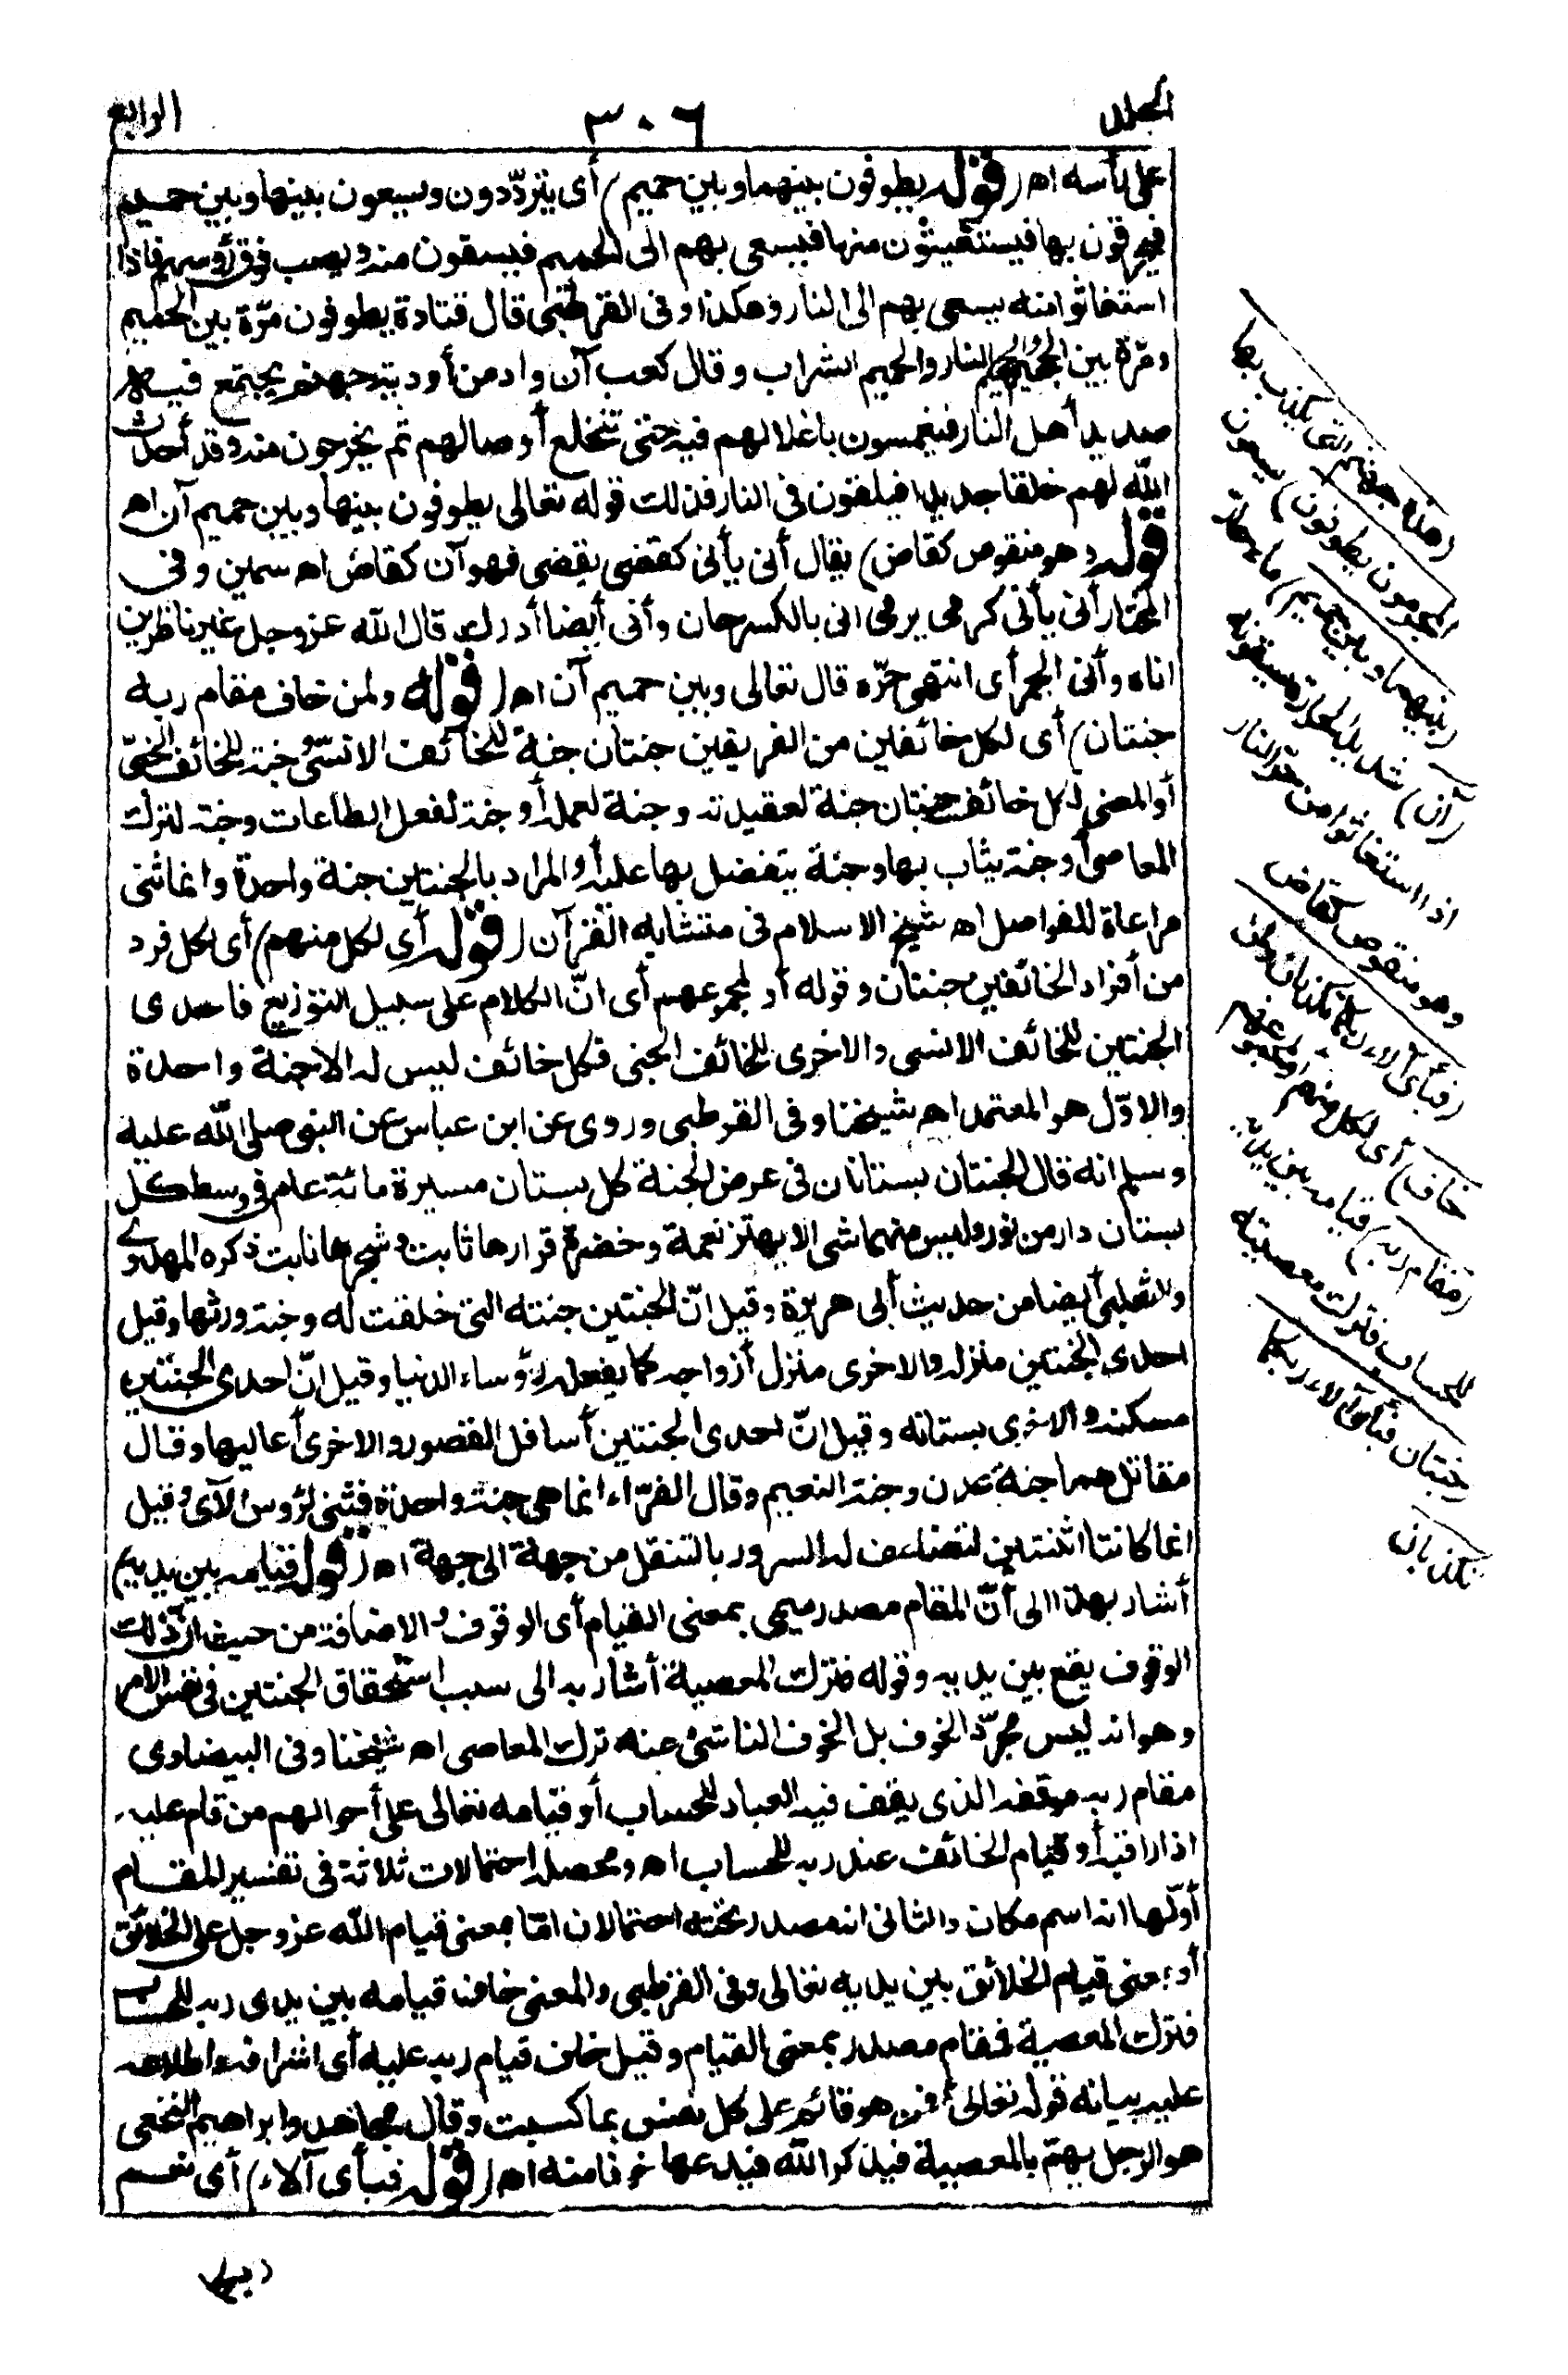 المجلد
٣٠٦
الرابع
على رأسه اه (قوله يطوفون بينهما وبين حميم) أى يتردّدون ويسعون بينها وبين حميم
فيحرقون بها فيستغيثون منها فيسعى بهم الى الحميم فيسقون منه ويصب فوق رؤسهم فاذا
استغاثوا منه يسعى بهم الى النار وهكذا وفى القرطبى قال قتادة يطوفون مرّة بين الحميم
ومرّة بين الجحيم والجحيم النار والحميم الشراب وقال كعب آن واد من أودية جهنم يجتمع فيه
صديد أهل النار فيغمسون باغلالهم فيه حتى تنخلع أوصالهم ثم يخرجون منه وقد أحدث
الله لهم خلقا جديدا فيلقون فى النار فذلك قوله تعالى يطوفون بينها وبين حميم آن اه
(قوله وهو منقوص كقاض) يقال أنى يأنى كقضى يقضى فهو آن كقاض اه سمين وفى
المختار أنى يأنى كرمى يرمى انى بالكسر حان وأنى أيضا أدرك قال الله عز وجل غير ناظرين
اناه وأنى الحميم أى انتهى حرّه قال تعالى وبين حميم آن اه (قوله ولمن خاف مقام ربه
جنتان) أى لكل خائفين من الفريقين جنتان جنة للخائف الانسىّ وجنة للخائف الجنىّ
أو المعنى لكل خائف جنتان جنة لعقيدته وجنة لعمله أو جنة لفعل الطاعات وجنة لترك
المعاصى أو جنة يثاب بها وجنة يتفضل بها عليه أو المراد بالجنتين جنة واحدة وانما ثنى
مراعاة للفواصل اه شيخ الاسلام فى متشابه القرآن (قوله أى لكل منهم) أى لكل فرد
من أفراد الخائفين جنتان وقوله أو لمجموعهم أى انّ الكلام على سبيل التوزيع فاحدى
الجنتين للخائف الانسى والاخرى للخائف الجنى فكل خائف ليس له الا جنة واحدة
والاوّل هو المعتمد اه شيخنا وفى القرطبى وروى عن ابن عباس عن النبى صلى الله عليه
وسلم انه قال الجنتان بستانان فى عرض الجنة كل بستان مسيرة مائة عام فى وسط كل
بستان دار من نور وليس منهما شئ الا يهتز نعمة وخضرة قرارها ثابت وشجرها نابت ذكره المهدوى
والثعلبى أيضا من حديث أبى هريرة وقيل انّ الجنتين جنته التى خلقت له وجنة ورثها وقيل
احدى الجنتين منزله والاخرى منزل أزواجه كما يفعله رؤساء الدنيا وقيل انّ احدى الجنتين
مسكنه والاخرى بستانه وقيل انّ احدى الجنتين أسافل القصور والاخرى أعاليها وقال
مقاتل هما جنة عدن وجنة النعيم وقال الفرّاء انما هى جنة واحدة فثنى لرؤس الآى وقيل
انما كانتا اثنتين لتضاعف له السرور بالتنقل من جهة الى جهة اه (قوله قيامه بين يديه)
أشار بهذا الى أنّ المقام مصدر ميمى بمعنى القيام أى الوقوف والاضافة من حيث انّ ذلك
الوقوف يقع بين يديه وقوله فترك المعصية أشار به الى سبب استحقاق الجنتين فى نفس الامر
وهو انه ليس مجرّد الخوف بل الخوف الناشئ عنه ترك المعاصى اه شيخنا وفى البيضاوى
مقام ربه موقفه الذى يقف فيه العباد للحساب أو قيامه تعالى على أحوالهم من قام عليه
اذا راقبه أو قيام الخائف عند ربه للحساب اه ومحصله احتمالات ثلاثة فى تفسير المقام
أوّلها انه اسم مكان والثانى انه مصدر تحته احتمالان امّا بمعنى قيام الله عز وجل على الخلائق
أو بمعنى قيام الخلائق بين يديه تعالى وفى القرطبى والمعنى خاف قيامه بين يدى ربه للحساب
فترك المعصية فمقام مصدر بمعنى القيام وقيل خاف قيام ربه عليه أى اشرافه واطلاعه
عليه بيانه قوله تعالى أفمن هو قائم على كل نفس بما كسبت وقال مجاهد وابراهيم النخعى
هو الرجل يهتم بالمعصية فيذكر الله فيدعها خوفا منه اه (قوله فبأى آلاء) أى نعم
(هذه جهنم التى يكذب بها
المجرمون يطوفون) يسعون
(بينهما وبين حميم) ماء حار
(آن) شديد الحرارة يسقونه
اذا استغاثوا من حر النار
وهو منقوص كقاض
(فبأى آلاء ربكما تكذبان ولمن
خاف) أى لكل منهم أو لمجموعهم
(مقام ربه) قيامه بين يديه
للحساب فترك معصيته
(جنتان فبأى آلاء ربكما
تكذبان